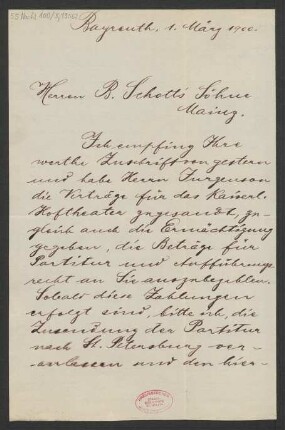 Bayreuth, 1. März 1900.
Herren B. Schott's Söhne
Mainz.
Ich empfing Ihre
werthe Zuschrift von gestern
und habe Herrn Jurgenson
die Verträge für das Kaiserl.
Hoftheater zugesandt, zu-
gleich auch die Ermächtigung
gegeben, die Beträge für
Partitur und Aufführungs-
recht an Sie auszubezahlen.
Sobald diese Zahlungen
erfolgt sind, bitte ich, die
Zusendung der Partitur
nach St. Petersburg ver-
anlassen und den hier-